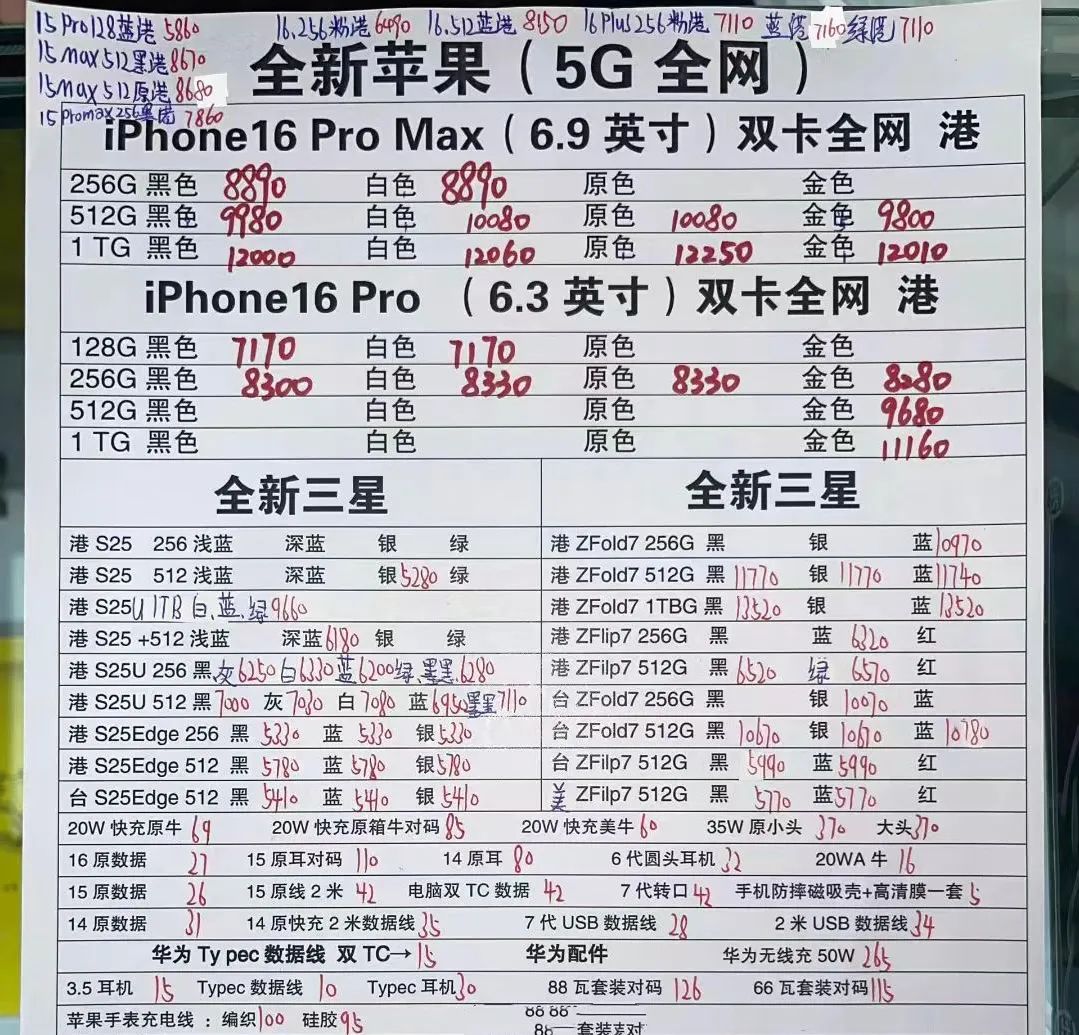 15 Pro128蓝港 5860 16.256粉港 6490 16.512蓝港 8150 16Plus256粉港 7110 蓝港 7160 绿港 7110
15 max 512黑港 8670
15max 512原港 8680
15 Promax 256黑港 7860
全新苹果（5G 全网）
iPhone16 Pro Max（6.9 英寸）双卡全网 港
256G 黑色 8890 白色 8890 原色 金色
512G 黑色 9980 白色 10080 原色 10080 金色 9800
1 TG 黑色 12000 白色 12060 原色 12250 金色 12010
iPhone16 Pro （6.3 英寸）双卡全网 港
128G 黑色 7170 白色 7170 原色 金色
256G 黑色 8300 白色 8330 原色 8330 金色 8280
512G 黑色 白色 原色 金色 9680
1 TG 黑色 白色 原色 金色 11160
全新三星 全新三星
港 S25 256 浅蓝 深蓝 银 绿 港 ZFold7 256G 黑 银 蓝 10970
港 S25 512 浅蓝 深蓝 银 5280 绿 港 ZFold7 512G 黑 11770 银 11770 蓝 11740
港 S25U 1TB 白.蓝.绿 9660 港 ZFold7 1TBG 黑 13520 银 蓝 13520
港 S25 +512 浅蓝 深蓝 6180 银 绿 港 ZFlip7 256G 黑 蓝 6320 红
港 S25U 256 黑.灰 6250 白 6330 蓝 6200 绿. 6280 港 ZFilp7 512G 黑 6520 绿 6570 红
港 S25U 512 黑 7000 灰 7030 白 7080 蓝 6950 7110 台 ZFold7 256G 黑 银 10070 蓝
港 S25Edge 256 黑 5330 蓝 5330 银 5330 台 ZFold7 512G 黑 10670 银 10670 蓝 10780
港 S25Edge 512 黑 5780 蓝 5780 银 5780 台 ZFilp7 512G 黑 5990 蓝 5990 红
台 S25Edge 512 黑 5410 蓝 5410 银 5410 美 ZFilp7 512G 黑 5770 蓝 5770 红
20W 快充原牛 69 20W 快充原箱牛对码 85 20W 快充美牛 60 35W 原小头 370 大头 370
16 原数据 27 15 原耳对码 110 14 原耳 80 6 代圆头耳机 32 20WA 牛 16
15 原数据 26 15 原线 2 米 42 电脑双 TC 数据 42 7 代转口 42 手机防摔磁吸壳+高清膜一套 5
14 原数据 31 14 原快充 2 米数据线 35 7 代 USB 数据线 28 2 米 USB 数据线 34
华为 Ty pec 数据线 双 TC→ 15 华为配件 华为无线充 50W 265
3.5 耳机 15 Typec 数据线 10 Typec 耳机 30 88 瓦套装对码 126 66 瓦套装对码 115
苹果手表充电线：编织 100 硅胶 95